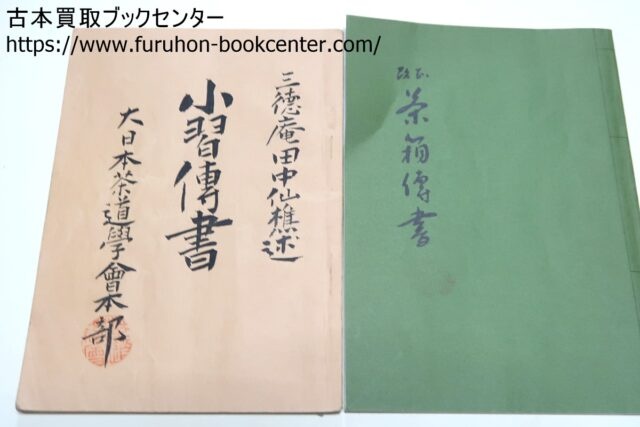 古本買取ブックセンター
https://www.furuhon-bookcenter.com/
三徳庵田中仙樵述
小習傳書
大日本茶道學會本部
改正
茶箱傳書